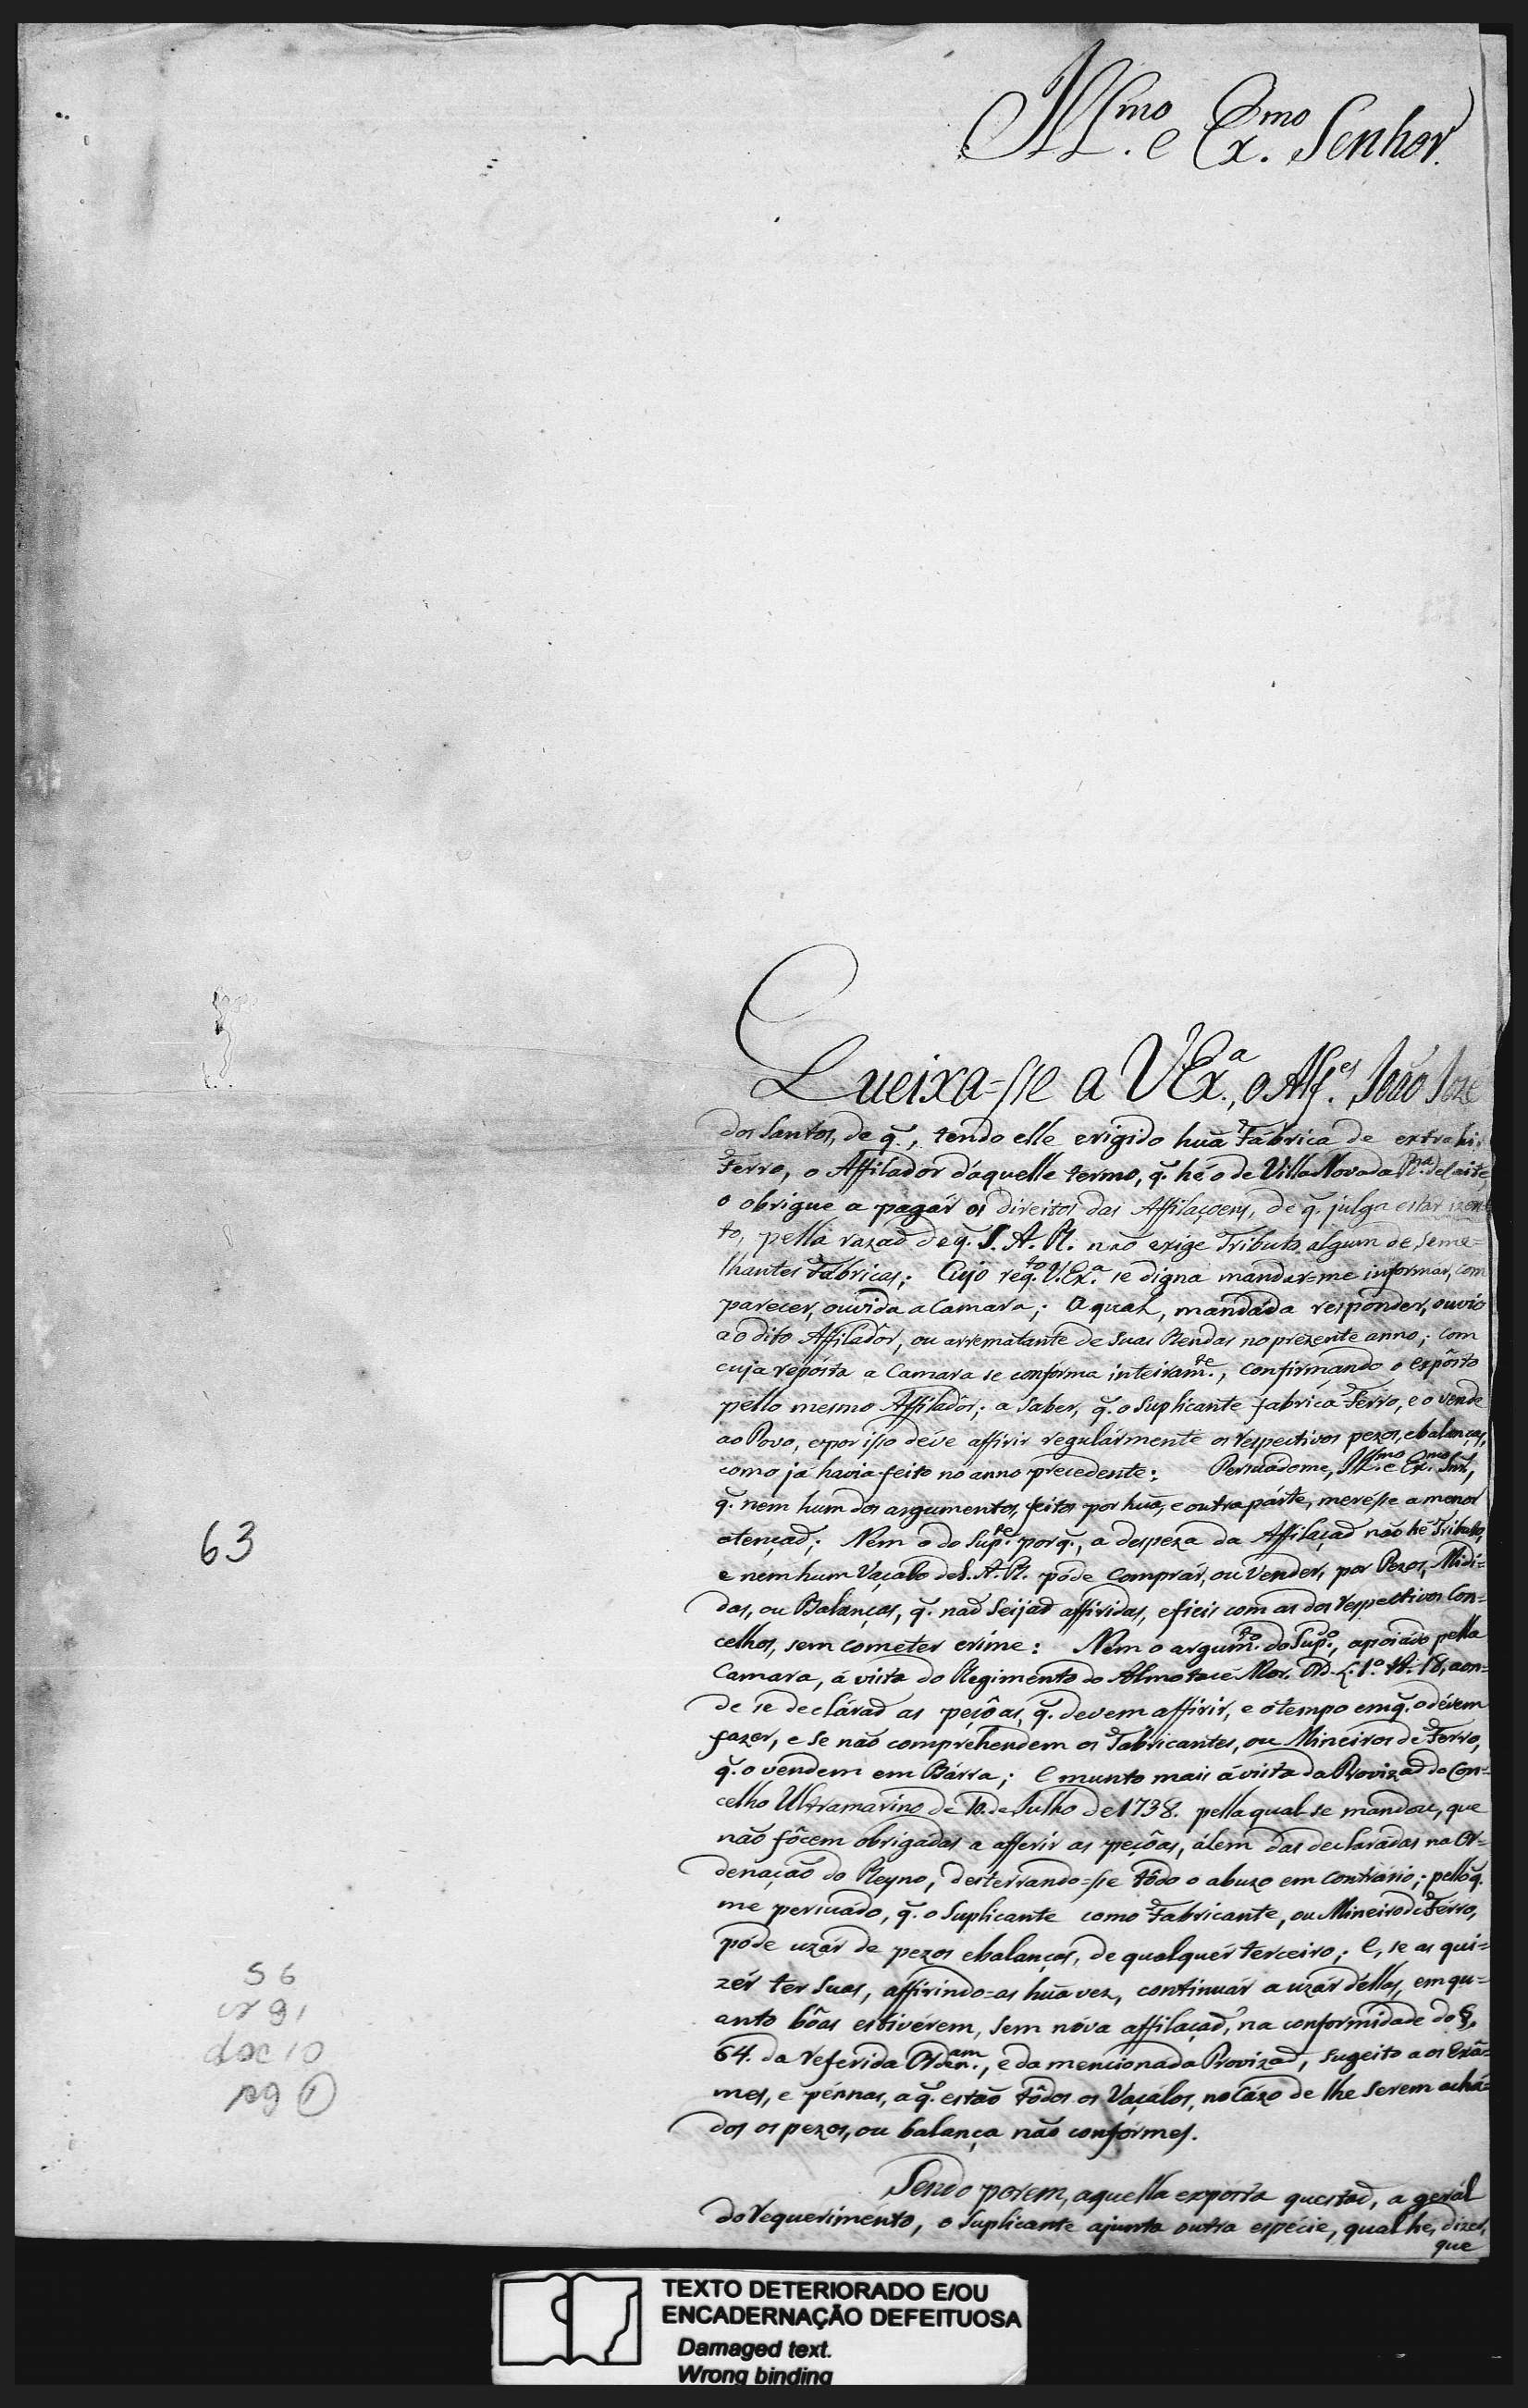 Illmo. e Exmo. Senhor.
Queixa-se a VExa., o Alfes. João Joze
dos Santos, de q., tendo elle erigido huã Fábrica de extrahir
Ferro, o Affiladôr dáquelle termo, q. hé o de Villa Nova da Ra. 
o obrigue a pagár os direitos das Affilaçoens, de q. julga estar izen
to, pella razaõ de q. S. A. R. não exige Tributo algum de seme=
lhantes Fabricas; Cujo reqto. V.Exa. se digna mandar=me informar, com
parecer, ouvida a Camara; A qual, mandáda respônder, ouvio
ao dito Affiladôr, ou arrematante de suas Rendas no prezente anno; com
cuja repósta a Camara se conforma inteiramte., confirmando o expôsto
pello mesmo Affiladôr; a saber, q. o Suplicante fabríca Ferro, e o vende
ao Povo, e por isso déve affirir regulármente os respectivos pezos, e balanças,
como já havia feito no anno precedente: Persuádeme, Illmo. e Exmo. Snr.,
q. nem hum dos argumentos, feitos por huã, e outra párte, merésse a menor
atençaõ; Nem o do Supte. porq., a despeza da Affilaçaõ não hé Tributo,
e nem hum Vaçalo de S. A. R. póde comprár, ou vender, por Pezos, Midi=
das, ou Balanças, q. naõ seijaõ affiridas, e fieis com as dos respectivos Con=
celhos, sem cometer crime: Nem o argumto. do Supo., apoiádo pella
Camara, á vista do Regimento do Almotacé Mor. Ord. L. 1º. tt. 18, aon=
de se declárão as peçôas, q. devem affirir, e o tempo em q. o dévem
fazer, e se não comprehendem os Fabricantes, ou Mineiros de Ferro,
q. o vendem em Bárra; E munto mais á vista da Provizaõ do Con=
celho Ultramarino de 10. de Julho de 1738. pella qual se mandou, que
não fôcem obrigadas a afferir as peçôas, álem das declaradas na Or=
denação do Reyno, desterrando=se tôdo o abuzo em contrário; pello q.
me persuádo, q. o Suplicante como Fabricante, ou Mineiro de Férro,
póde uzár de pezos e balanças, de qualquér terceiro; E, se as qui=
zér ter suas, affirindo=as huã vez, continuár a uzár déllas, em qu=
anto bôas estivérem, sem nóva affilaçaõ, na conformidade do §.
64. da referida Ordenam., e da mencionáda Provizaõ, sugeito aos Exâ=
mes, e pénnas, a q. estão tôdos os Vaçálos, no Cázo de lhe serem achá=
dos os pezos, ou balança não confórmes.
Sendo porem, aquella expósta questaõ, a gerál
do requerimênto, o Suplicante ajunta outra espécie, qual hé, dizer,
que
63
56
cx 91
doc 10
pg 1
TEXTO DETERIORADO E/OU
ENCADERNAÇÃO DEFEITUOSA
Damaged text.
Wrong binding